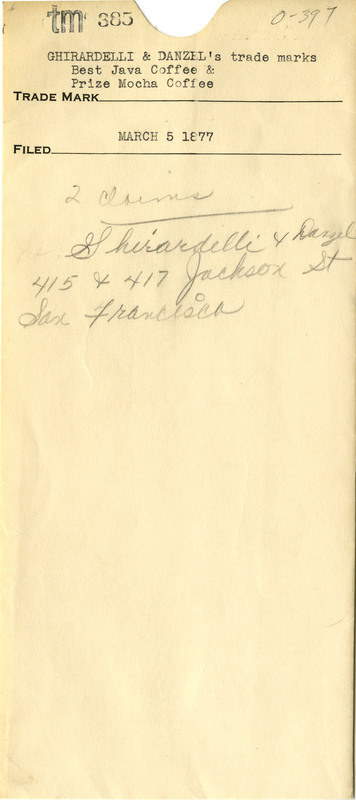 tm 385
0-397
GHIRARDELLI & DANZEL's trade marks
Best Java Coffee &
Prize Mocha Coffee
TRADE MARK
MARCH 5 1877
FILED
2 claims
Ghirardelli & Danzel
415 & 417 Jackson St
San Francisco